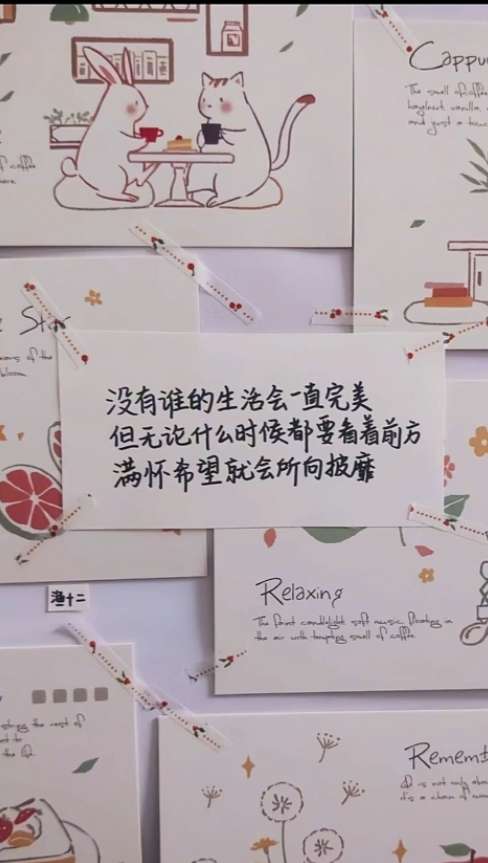 Cappu
The smell of coffee
hazelnut, vanilla,
and just a
of coffee
Star
of the
bloom.
没有谁的生活会一直完美
但无论什么时候都要看着前方
满怀希望就会所向披靡
Relaxing
The faint candlelight soft music floating in
the air with tempting smell of coffee.
渔十二
the rest of
to
the
Rememb
It is not only
it's a